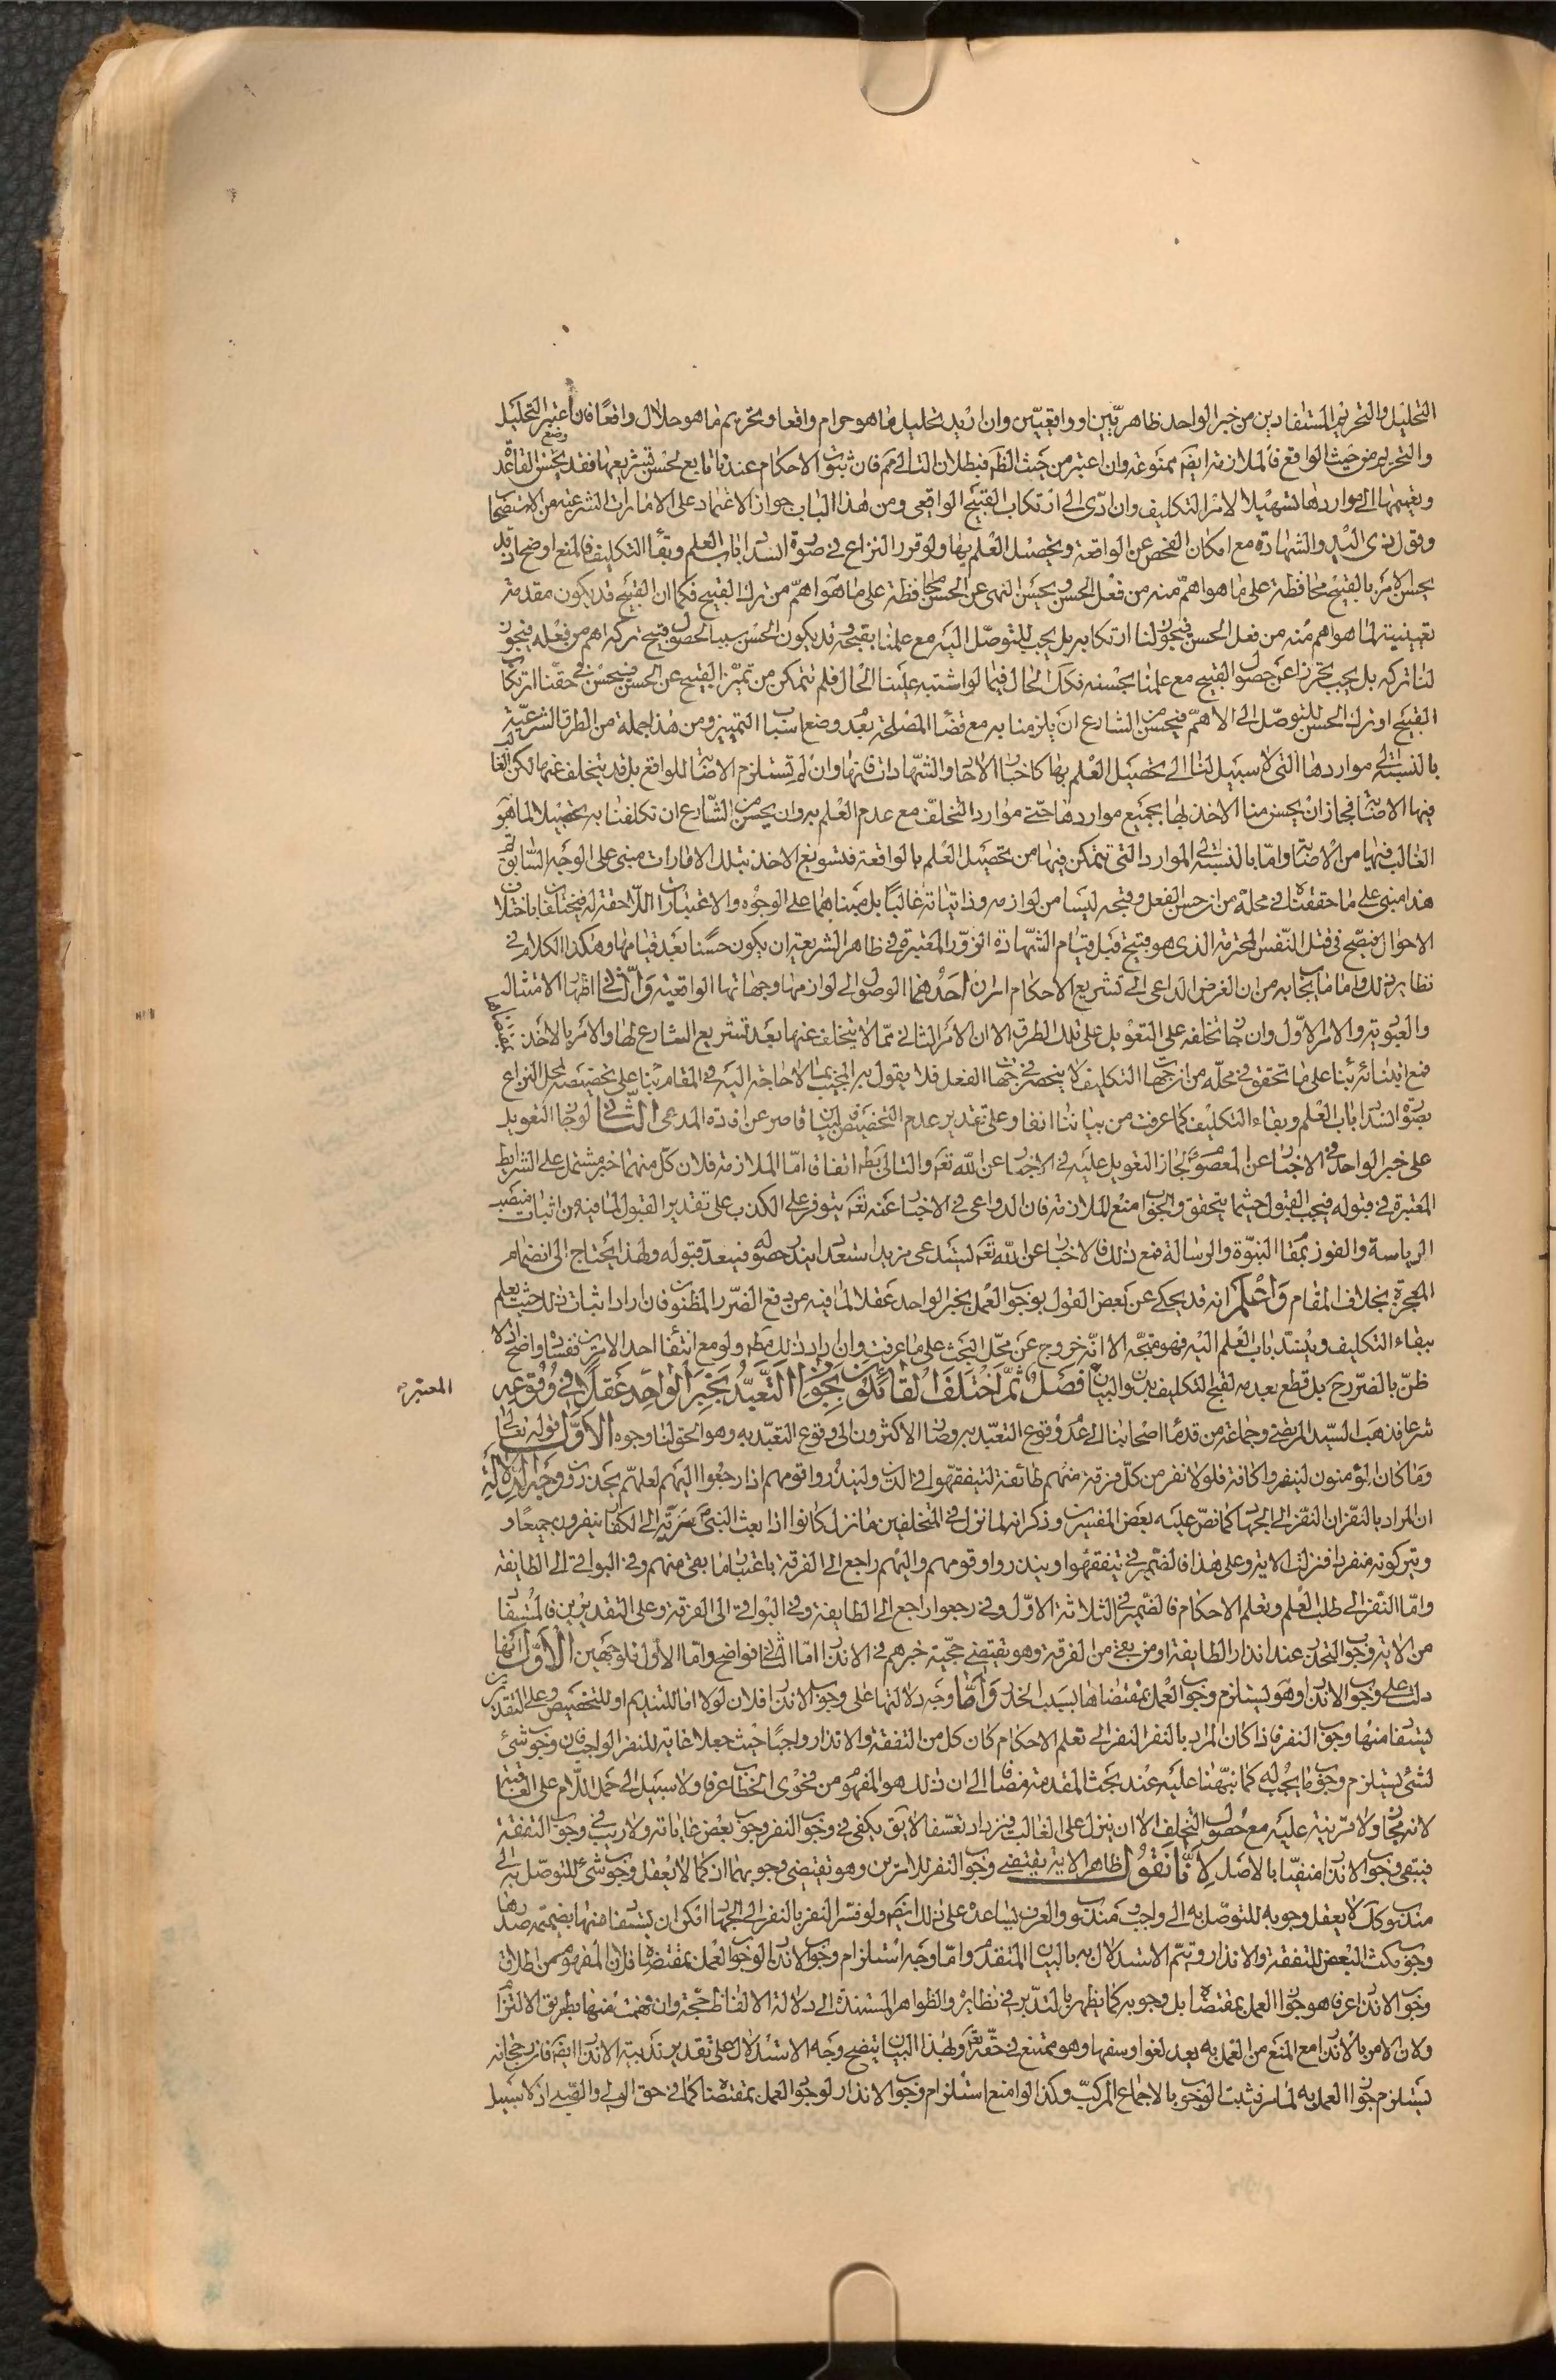 التحليل والتحريم المستفادين من خبر الواحد ظاهريّين او واقعيّين وان اريد تحليل ما هو حرام واقعا وتحريم ما هو حلال واقعًا فان اعتبر التحليل
والتحريم من حيث الواقع فالملازمة ايضا ممنوعة وان اعتبر من حيث الظاهر فبطلان التالى مم فان ثبوت الاحكام عندنا تابع لحسن تشريعها فقد يحسن وضع القاعدة
وتعميمها الى مواردها تسهيلا لامر التكليف وان ادّى الى ارتكاب القبيح الواقعى ومن هذا الباب جواز الاعتماد على الامارات الشرعية من الاستصحاب
وقول ذى اليد والشهادة مع امكان الفحص عن الواقعة وتحصيل العلم بها ولو قرر النزاع فى صورة انسداد باب العلم وبقاء التكليف فالمنع اوضح اذ قد
يحسن الامر بالقبيح محافظة على ما هو اهمّ منه من فعل الحسن ويحسن النهى عن الحسن محافظة على ما هو اهمّ من ترك القبيح فكما ان القبيح قد يكون مقدمة
تعيينية لما هو اهم منه من فعل الحسن فيجوز لنا ارتكابه بل يجب للتوصّل اليه مع علمنا بقبحه وقد يكون الحسن سببا لحصول قبيح تركه اهم من فعله فيجوز
لنا تركه بل يجب تحرزا عن حصول القبيح مع علمنا بحسنه فكك الحال فيما لو اشتبه علينا الحال فلم نتمكن من تميز القبيح عن الحسن فيحسن فى حقّنا ارتكاب
القبيح او ترك الحسن للتوصّل الى الاهمّ فيحسن من الشارع ان يلزمنا به مع قضاء المصلحة بعد وضع اسباب التمييز ومن هذا جملة من الطرق الشرعيّة
بالنسبة الى مواردها التى لا سبيل لنا الى تحصيل العلم بها كاخبار الآحاد والشهادات فانها وان لم تستلزم الاصابة للواقع بل قد يتخلف عنها لكن الغالب
فيها الاصابة فجاز ان يحسن منا الاخذ بها بجميع مواردها حتى موارد التخلّف مع عدم العلم به وان يحسن من الشارع ان تكلفنا به تحصيلا لما هو
الغالب فيها من الاصابة وامّا بالنسبة الى الموارد التى نتمكن فيها من تحصيل العلم بالواقعة فتسويغ الاخذ بتلك الامارات مبنى على الوجه السّابق ثم
هذا مبنى على ما حققناه فى محلّه من ان حسن الفعل وقبحه ليسا من لوازمه وذاتياته غالبًا بل مبناهما على الوجوه والاعتبارات اللاحقة له فيختلفا باختلاف
الاحوال فيصح فى قتل النّفس المحترمة الذى هو قبيح قبل قيام الشّهادة الزور المعتبرة فى ظاهر الشريعة ان يكون حسنًا بعد قيامها وهكذا الكلام فى
نظاير ذلك واما ما يجاب به من ان الغرض الداعى الى تشريع الاحكام امران احدهما الوصول الى لوازمها وجهاتها الواقعية والثانى اظهار الامتثال
والعبودية والامر الاوّل وان جاز تخلفه على التعويل على تلك الطرق الا ان الامر الثانى ممّا لا يتخلف عنها بعد تشريع الشارع لها والامر بالاخذ بمقتضاها
فمع ابتنائه بناء على ما تحقق فى محلّه من ان جهات التكليف لا ينحصر فى جهات الفعل فلا يقول به المجيب بما لا حاجة اليه فى المقام بناء على تخصيصه لمحل النزاع
بصورة انسداد باب العلم وبقاء التكليف كما عرفت من بياننا انفا وعلى تقدير عدم التخصيص فالبيان قاصر عن افادة المدعى الثانى لو جاز التعويل
على خبر الواحد فى الاخبار عن المعصوم لجاز التعويل عليه فى الاخبار عن الله تعه والتالى بط اتفاقا امّا الملازمة فلان كل منهما خبر مشتمل على الشرايط
المعتبرة فى قبوله فيجب القبول حيثما يتحقق والجواب منع الملازمة فان الدواعى فى الاخبار عنه تعه يتوفر على الكذب على تقدير القبول لما فيه من اثبات منصب
الرياسة والفوز بمقام النبوّة والرسالة فمع ذلك فالاخبار عن الله تعه يستدعى مزيد استعداد يندر حصوله فيبعد قبوله ولهذا يحتاج الى انضمام
المعجزة بخلاف المقام واعلم انه قد يحكى عن بعض القول بوجوب العمل بخبر الواحد عقلا لما فيه من دفع الضّرر المظنون فان اراد اثبات ذلك حيث يعلم
ببقاء التكليف وينسدّ باب العلم اليه فهو متجّه الا انّه خروج عن محل البحث على ما عرفت وان اراد ذلك مط ولو مع انتفاء احد الامرين ففساده واضح اذ لا
ظنّ بالضّرر ح بل قطع بعدمه لقبح التكليف بدون البيان فصل ثمّ اختلف القائلون بجواز التعبّد بخبر الواحد عقلا فى وقوعه
المعتبرة
شرعا فذهب السيّد المرتضى وجماعة من قدماء اصحابنا الى عدم وقوع التعبّد به وصار الاكثرون الى وقوع التعبّد به وهو الحق لنا وجوه الاوّل قوله تعالى
وما كان المؤمنون لينفروا كافة فلولا نفر من كلّ فرقة منهم طائفة ليتفقهوا فى الدين ولينذروا قومهم اذا رجعوا اليهم لعلهم يحذرون وجه الدلالة
ان المراد بالنفر ان النفر الى الجهاد كما نصّ عليه بعض المفسّرين وذكر انه لما نزل فى المتخلفين ما نزل كانوا اذا بعث النبىّ ص سريّة الى الكفار ينفرون جميعًا و
ويتركونه منفردا فنزلت الاية وعلى هذا فالضمير فى يتفقهوا وينذروا وقومهم واليهم راجع الى الفرقة باعتبار ما بقى منهم وفى البواقى الى الطايفة
وامّا النّفر الى طلب العلم وتعلم الاحكام فالضمير فى الثلاثة الاوّل وفى رجعوا راجع الى الطايفة وفى البواقى الى الفرقة وعلى التقديرين فالمستفاد
من الاية وجوب التحذر عند انذار الطايفة او من بقى من الفرقة وهو يقتضى حجّية خبرهم فى الانذار امّا الثانى فواضح وامّا الاول فلوجهين الاوّل انّها
دلت على وجوب الانذار وهو يستلزم وجوب العمل بمقتضاها بسبب الحذر وامّا وجه دلالتها على وجوب الانذار فلان لولا اما للتنديم او للتخصيص وعلى التقديرين
يستفاد منها وجوب النفر فاذا كان المراد بالنفر النفر الى تعلم الاحكام كان كل من التفقة والانذار واجبًا حيث جعلا غاية للنفر الواجب فان وجوب شئ
لشئ يستلزم وجوب ما يجب له كما نبّهنا عليه عند بحث المقدمة مضافا الى ان ذلك هو المفهوم من فحوى الخطاب عرفا ولا سبيل الى حمل اللّام على العاقبة
لانه مجاز ولا قرينة عليه مع حصول التخلف الا ان ينزل على الغالب فيزداد تعسّفا لايق يكفى فى وجوب النفر وجوب بعض غاياته ولا ريب فى وجوب التفقة
فيبقى وجوب الانذار منفيّا بالاصل لانّا نقول ظاهر الاية يقتضى وجوب النفر للامرين وهو يقتضى وجوبهما اذ كما لا يعقل وجوب شئ للتوصّل به الى
مندوب كك لا يعقل وجوبه للتوصّل به الى واجب ومندوب والعرف يساعد على ذلك ايضه ولو فسّر النفر بالنفر الى الجهاد امكن ان يستفاد منها بضميمة صدرها
وجوب مكث البعض للتفقة والانذار ويتمّ الاستدلال به بالبيان المتقدم وامّا وجه استلزام وجوب الانذار لوجوب العمل بمقتضاه فلان المفهوم من اطلاق
وجوب الانذار عرفا هو جواز العمل بمقتضاه بل وجوبه كما يظهر بالتدبّر فى نظايره والظواهر المستندة الى دلالة الالفاظ حجّة وان فهمت منها بطريق الالتزام
ولان الامر بالانذار مع المنع من العمل به يعد لغوا وسفها وهو ممتنع فى حقّه تعه وبهذا البيان يتضح وجه الاستدلال على تقدير ندبية الانذار ايضه فان رجحانه
يستلزم جواز العمل به لما مر فيثبت الوجوب بالاجماع المركبّ وكذا لو منع استلزام وجوب الانذار لوجوب العمل بمقتضاه كما فى حق الولى والوصى اذ لا سبيل